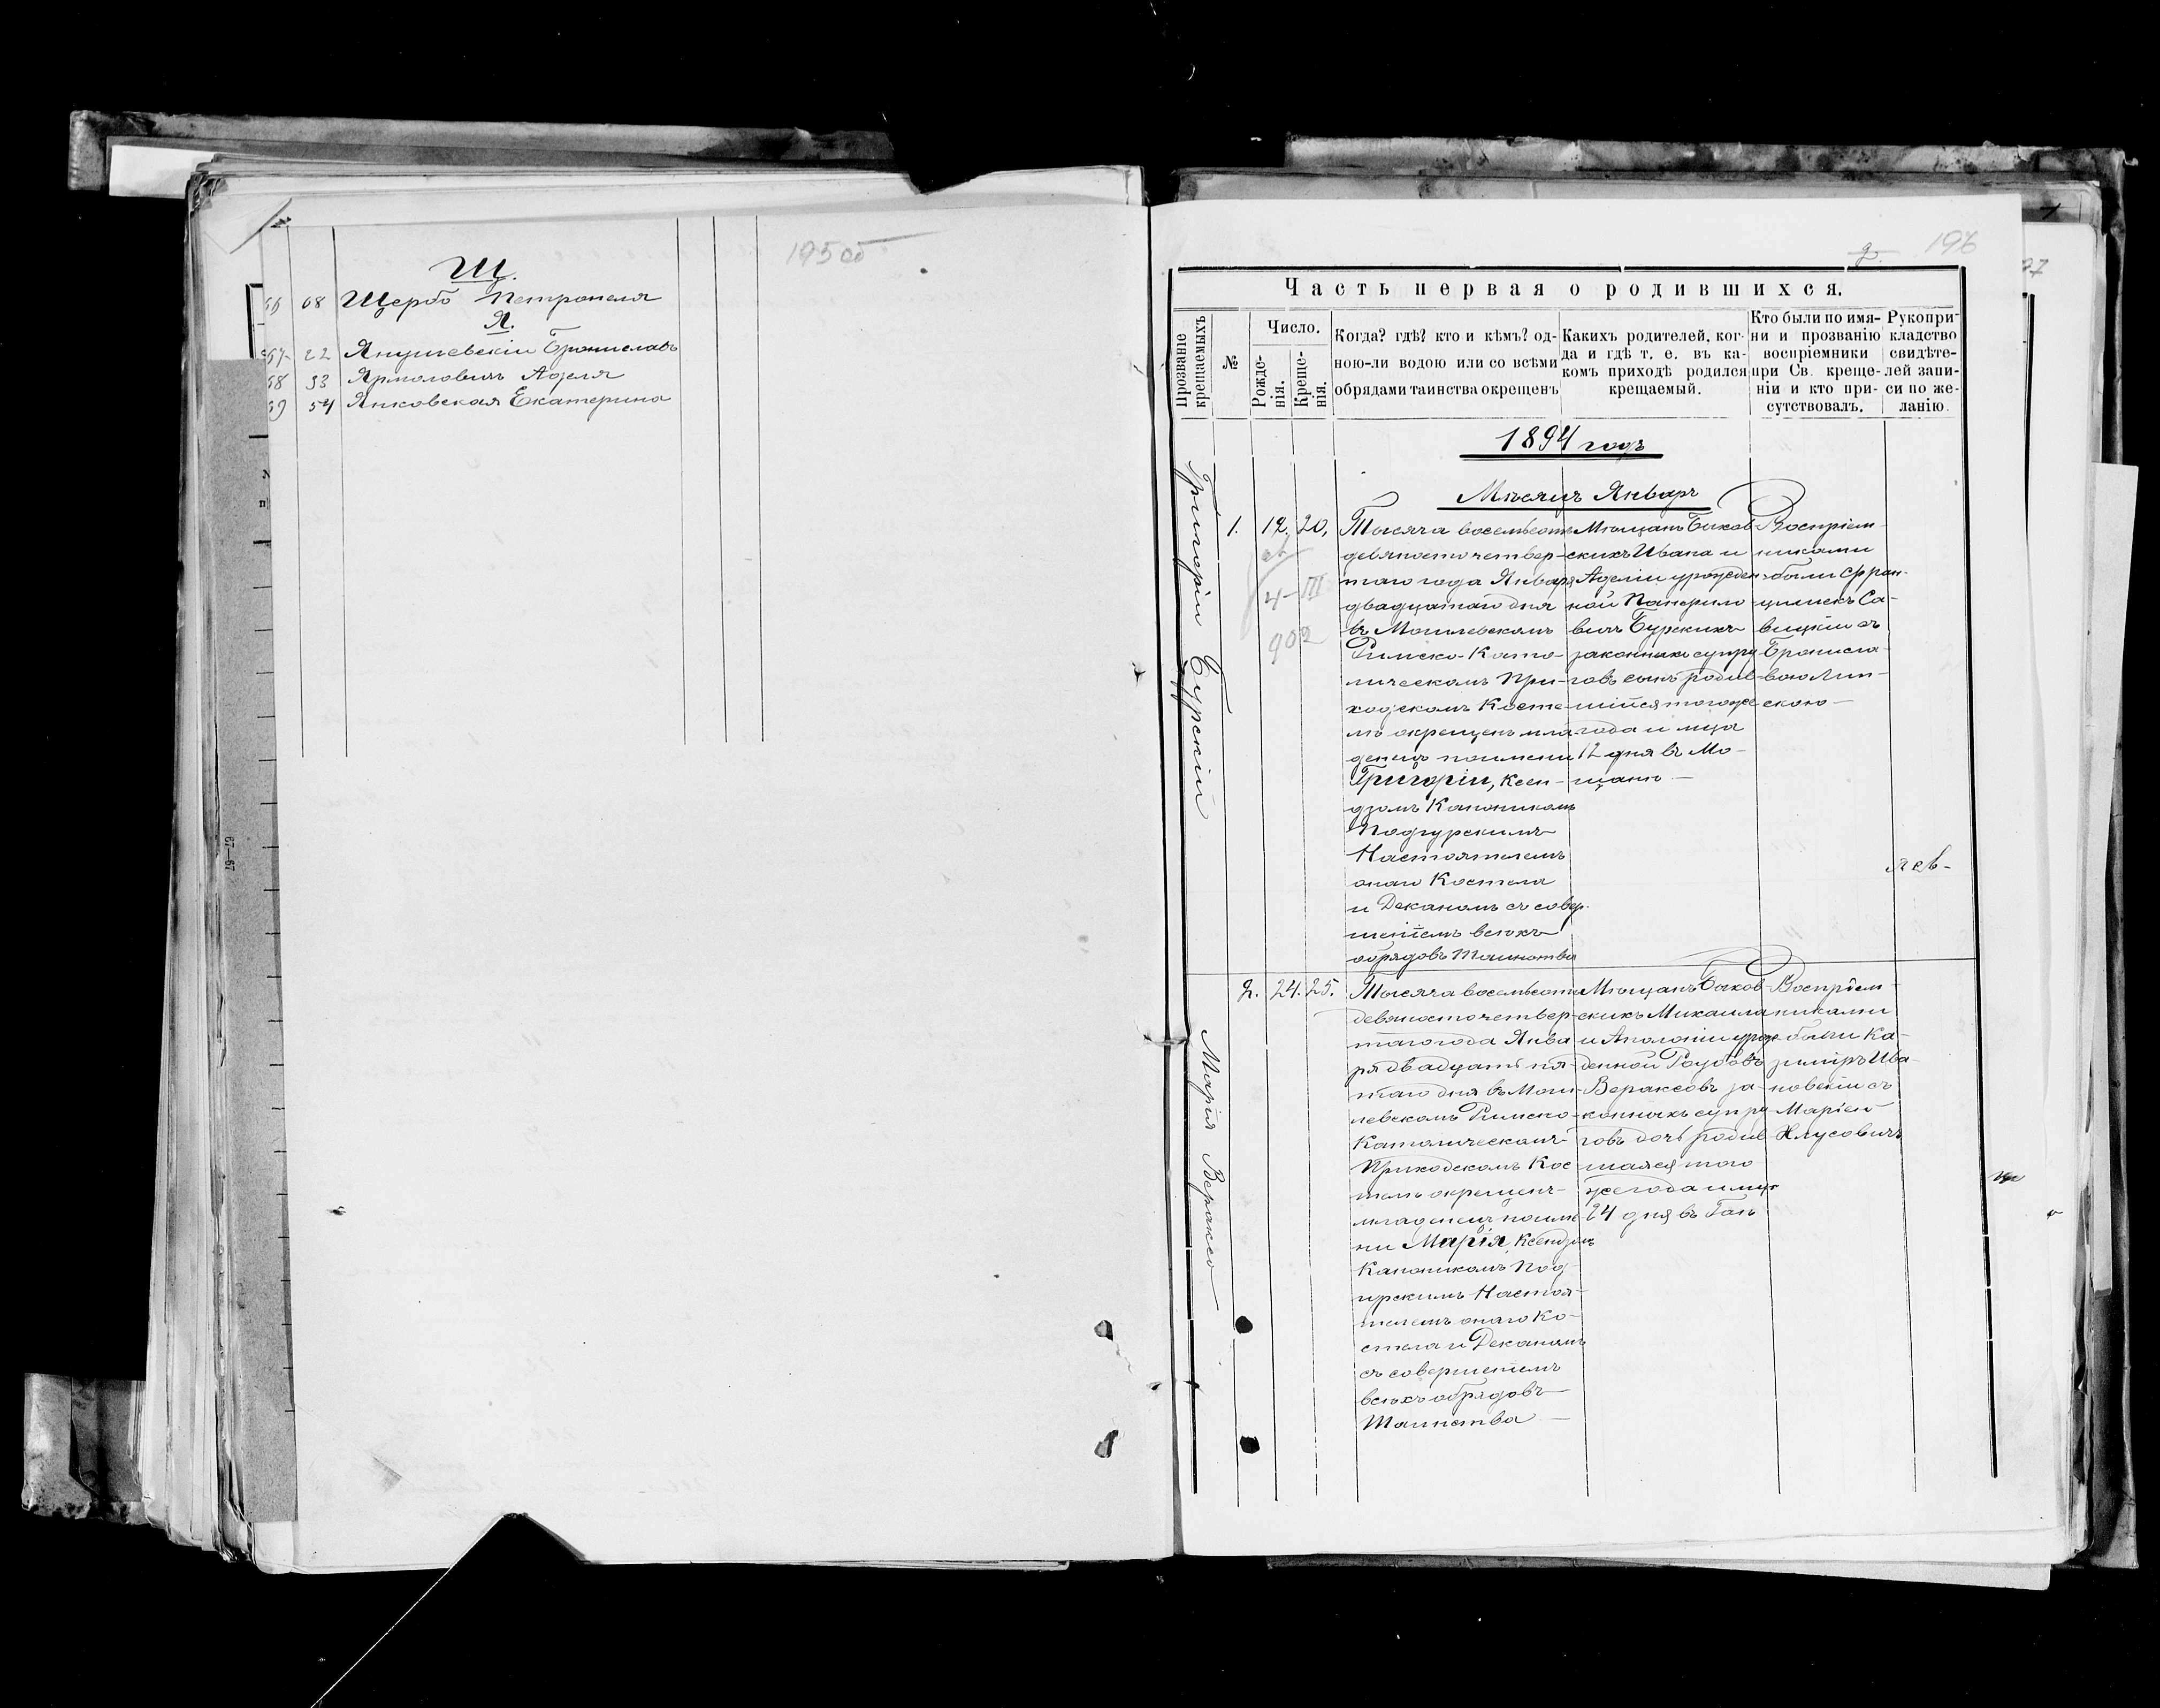 195 об
Щ.
66 68 Щербо Петронеля
Я.
67 22 Янушевскій Брониславъ
68 33 Ярмоловичъ Аделя
69 54 Янковская Екатерина
2.
196
Часть первая о родившихся.
Прозваніе крещаемыхъ
№
Число.
Рожде-
нія.
Креще-
нія.
Когда? гдѣ? кто и кѣмъ? од-
ною-ли водою или со всѣми
обрядами таинства окрещенъ
Какихъ родителей, ког-
да и гдѣ т. е. въ ка-
комъ приходѣ родился
крещаемый.
Кто были по имя-
ни и прозванію
воспріемники
при Св. креще-
ніи и кто при-
сутствовалъ.
Рукопри-
кладство
свидѣте-
лей запи-
си по же-
ланію.
1894 годъ
Мѣсяцъ Январь
Григорій Бурскій
1. 12. 20.
4-III
902
Тысяча восемьсотъ
девяносто четвер-
таго года Января
двадцатаго дня
въ Могилевскомъ
Римско-Като-
лическомъ При-
ходскомъ Косте-
лѣ окрещенъ мла
денецъ по имени
Григорій, Ксен-
дзомъ Каноникомъ
Подгурскимъ
Настоятелемъ
онаго Костела
и Деканомъ съ совер-
шеніемъ всѣхъ
обрядовъ Таинства
Мѣщанъ Быхов-
скихъ Ивана и
Аделіи урожден-
ной
Бурскихъ
законныхъ супру
говъ сынъ родив-
шійся тогоже
года и м-ца
12 дня въ Мо-
Воспріем-
никами
были Фран-
цишекъ Са-
вицкій съ
Брониcла-
вою Лип-
скою
Марія Вераксо
2. 24. 25.
Тысяча восемьсотъ
девяносто четвер-
таго года Янва
ря двадцать пя-
таго дня въ Моги-
левскомъ Римско-
Католическомъ
Приходскомъ Кос
телѣ окрещенъ
младенецъ по име
ни Марія, Ксендзомъ
Каноникомъ Под-
гурскимъ Настоя-
телемъ онаго Ко-
стела и Деканомъ
съ совершеніемъ
всѣхъ обрядовъ
Таинства
Мѣщанъ Быхов-
скихъ Михаила
и Аполоніи урож-
денной
Вераксовъ за-
конныхъ супру
говъ дочь родив
шаяся того
же года и м-ца
24 дня въ
Воспріем-
никами
были Ка-
зиміръ Ива-
новскій съ
Маріею
Клусовичъ